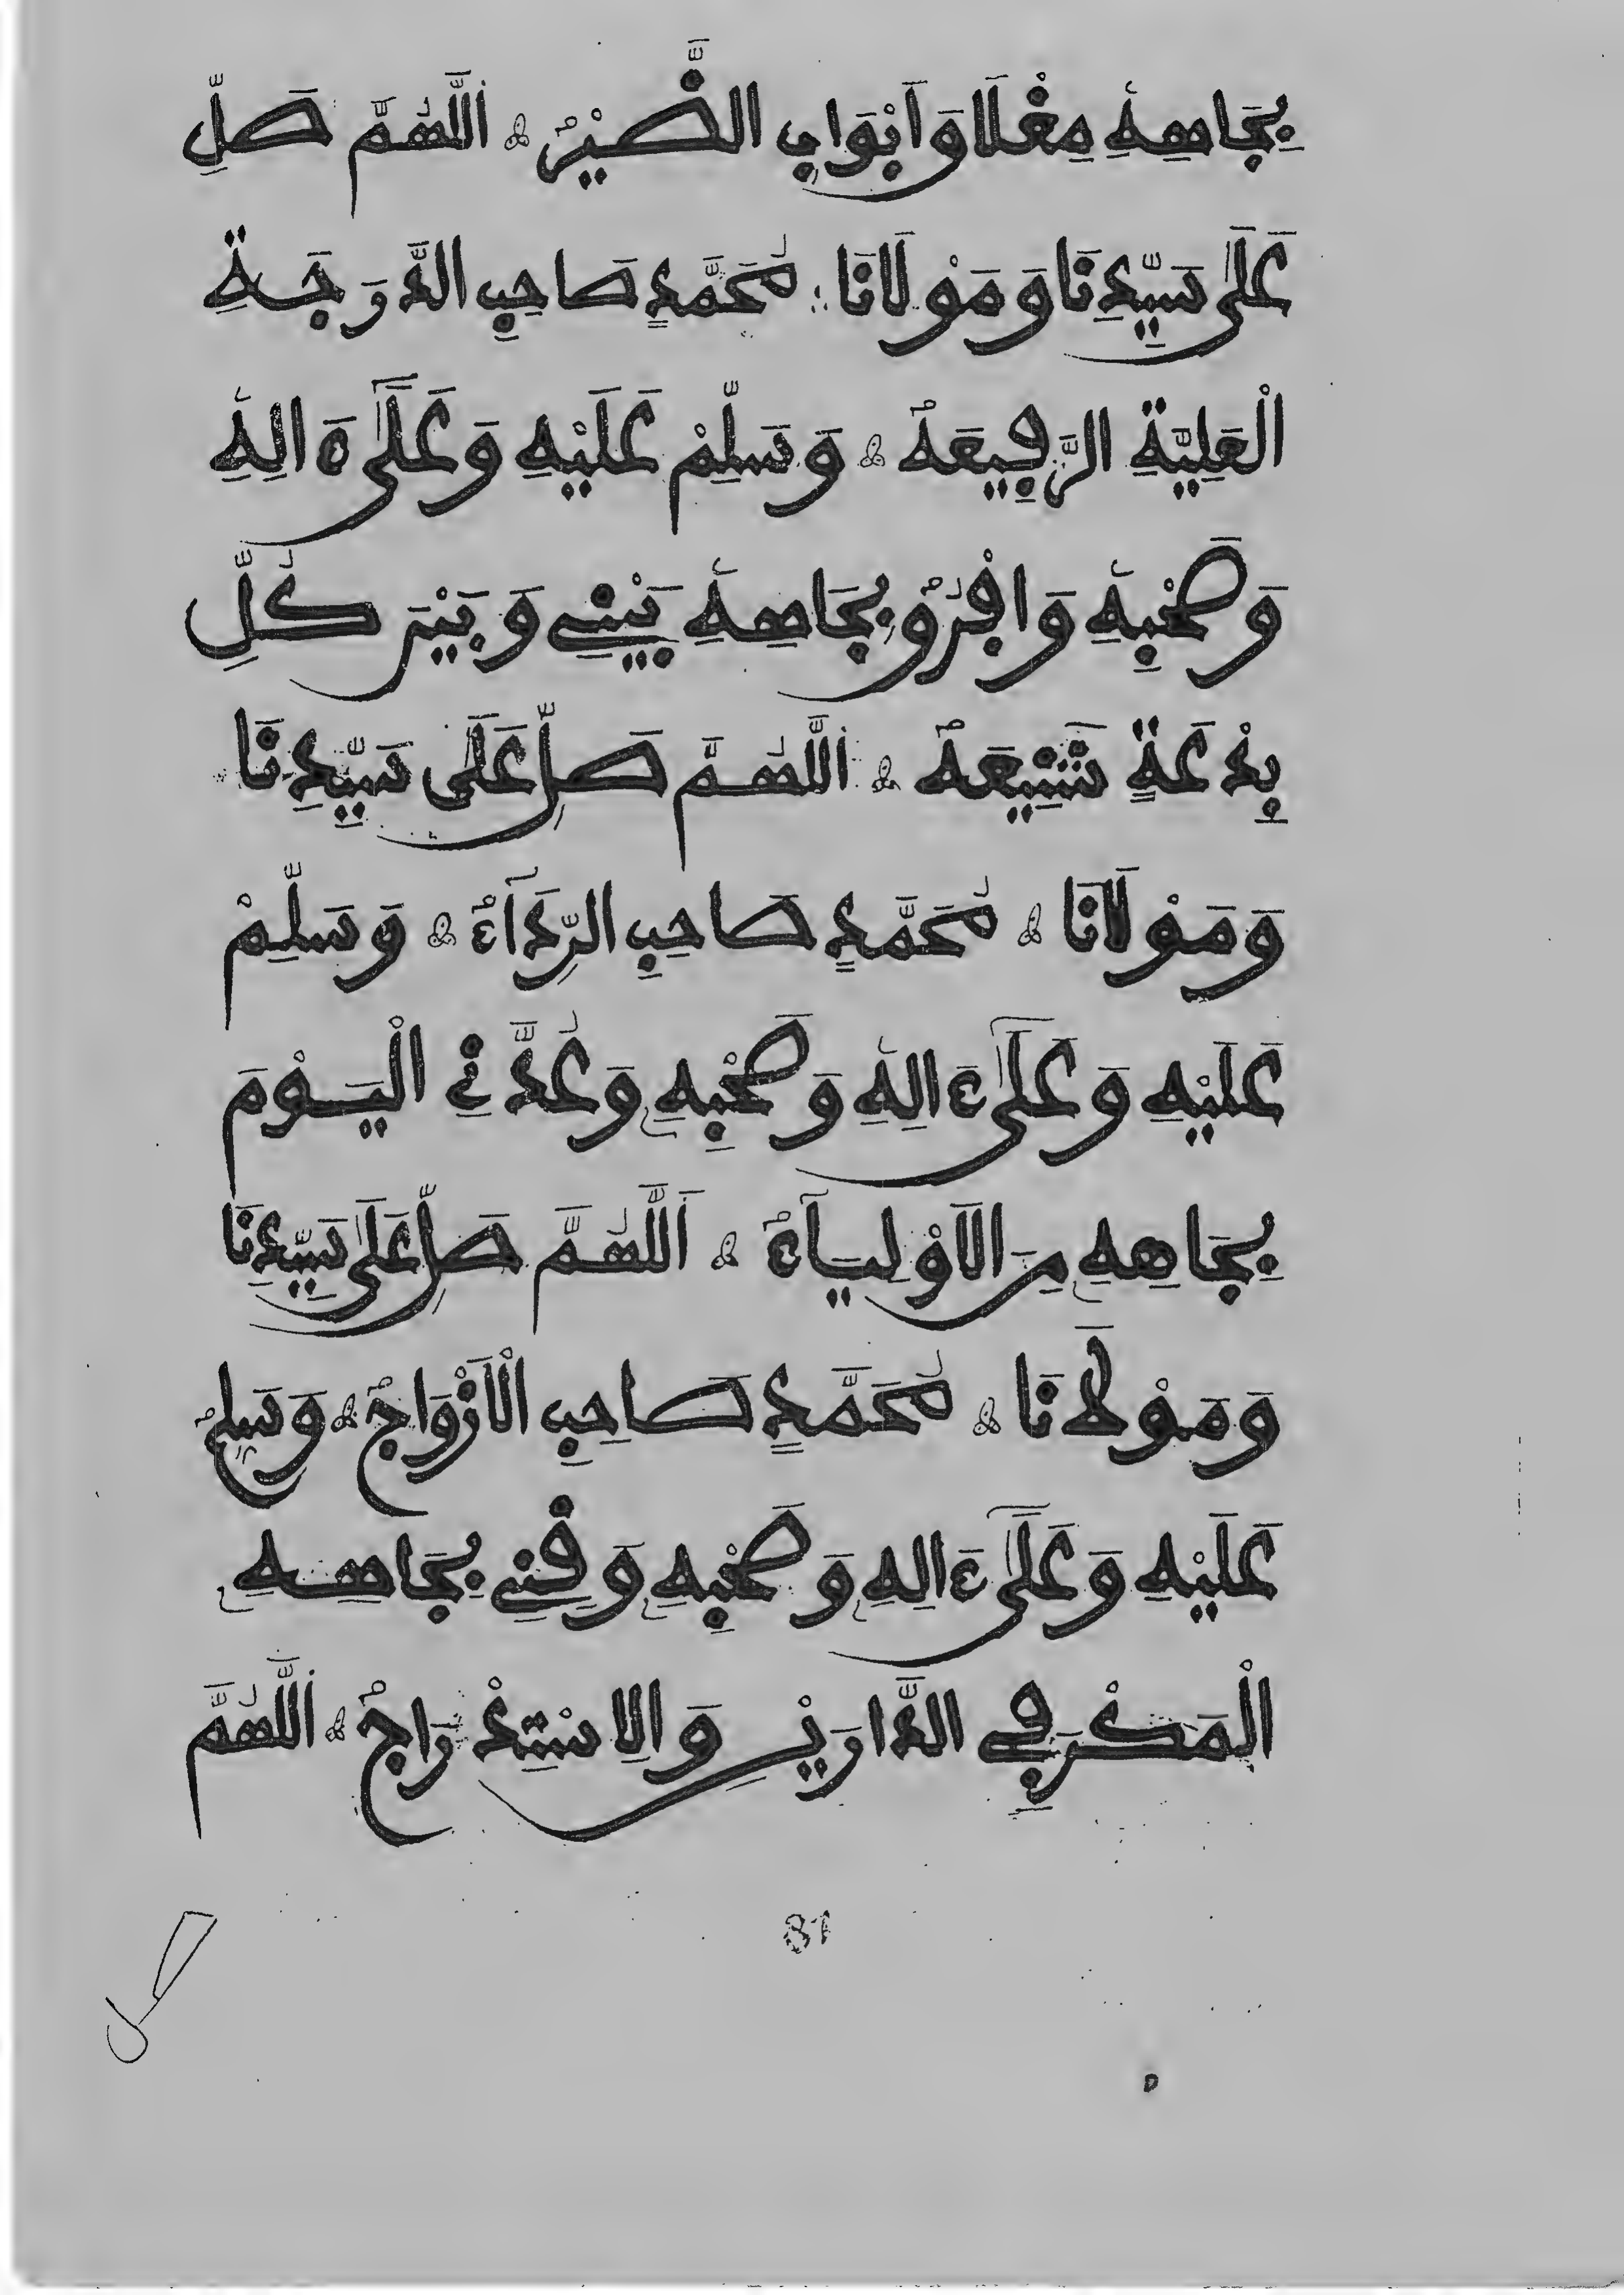 بِجَاهِهِ مِغْلَاقَ أَبْوَابِ الضَّيْرْ ۞ اَللَّهُمَّ صَلِّ
عَلَى سَيِّدِنَا وَمَوْلَانَا ؞ مُحَمَّدٍ صَاحِبِ الدَّرَجَةِ
الْعَلِيَّةِ الرَّفِيعَهْ ۞ وَسَلِّمْ عَلَيْهِ وَعَلَى ءَالِهِ
وَصَحْبِهِ وَافْرُقْ بِجَاهِهِ بَيْنِي وَبَيْنَ كُلِّ
بِدْعَةٍ شَنِيعَهْ ۞ اَللَّهُمَّ صَلِّ عَلَى سَيِّدِنَا
وَمَوْلَانَا ۞ مُحَمَّدٍ صَاحِبِ الرِّدَآءْ ۞ وَسَلِّمْ
عَلَيْهِ وَعَلَى ءَالِهِ وَصَحْبِهِ وَعُدَّنِي الْيَوْمَ
بِجَاهِهِ مِنَ الْأَوْلِيَآءْ ۞ اَللَّهُمَّ صَلِّ عَلَى سَيِّدِنَا
وَمَوْلَانَا ۞ مُحَمَّدٍ صَاحِبِ الْأَزْوَاجْ ۞ وَسَلِّمْ
عَلَيْهِ وَعَلَى ءَالِهِ وَصَحْبِهِ وَقِنِي بِجَاهِهِ
الْمَكْرَ فِي الدَّارَيْنِ وَالِاسْتِدْرَاجْ ۞ اَللَّهُمَّ
81